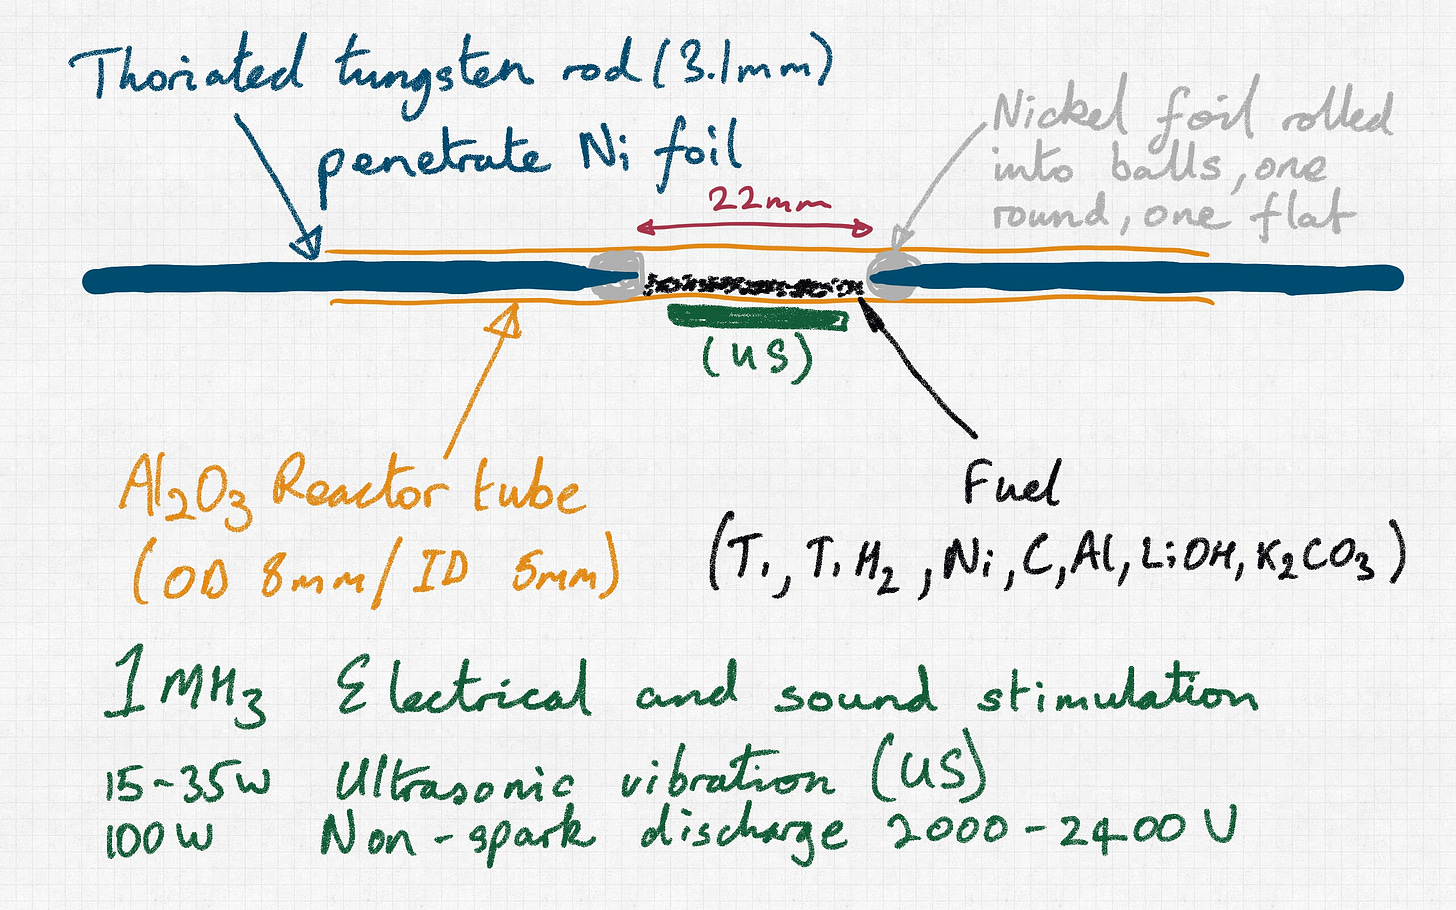 Thoriated tungsten rod (3.1mm)
penetrate Ni foil
Nickel foil rolled
into balls, one
round, one flat
22mm
(US)
Al2O3 Reactor tube
(OD 8mm/ID 5mm)
Fuel
(Ti, TiH2, Ni, C, Al, LiOH, K2CO3)
1MHz Electrical and sound stimulation
15-35W Ultrasonic vibration (US)
100W Non-spark discharge 2000-2400V